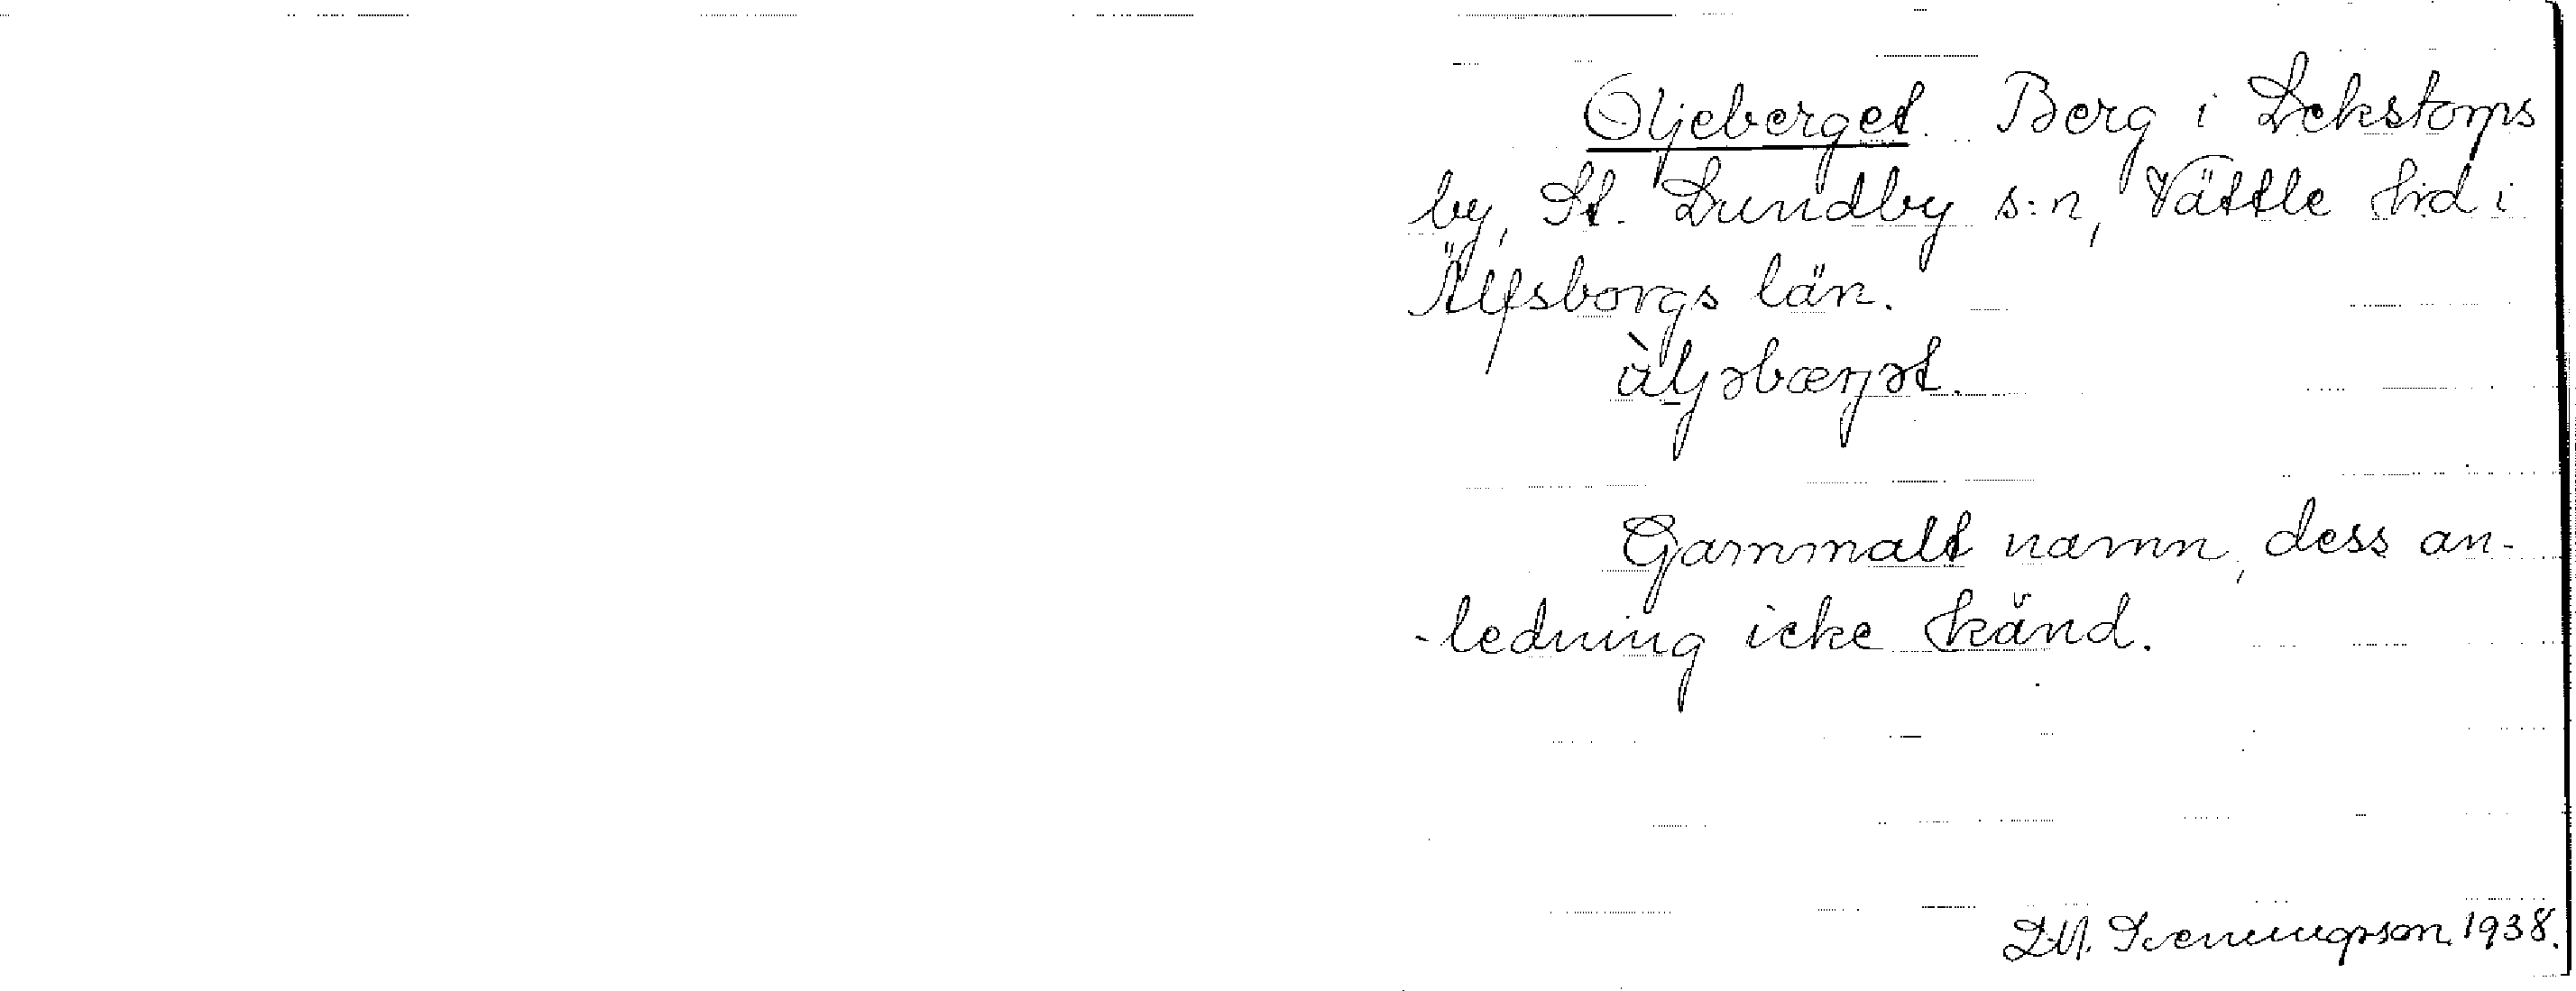 Oljeberget. Berg i Lekstorps
by, St. Lundby s:n, Vättle hd i
Älfsborgs län.
àljəbærjət.
Gammalt namn, dess an-
-ledning icke känd.
Sveningsson, 1938.